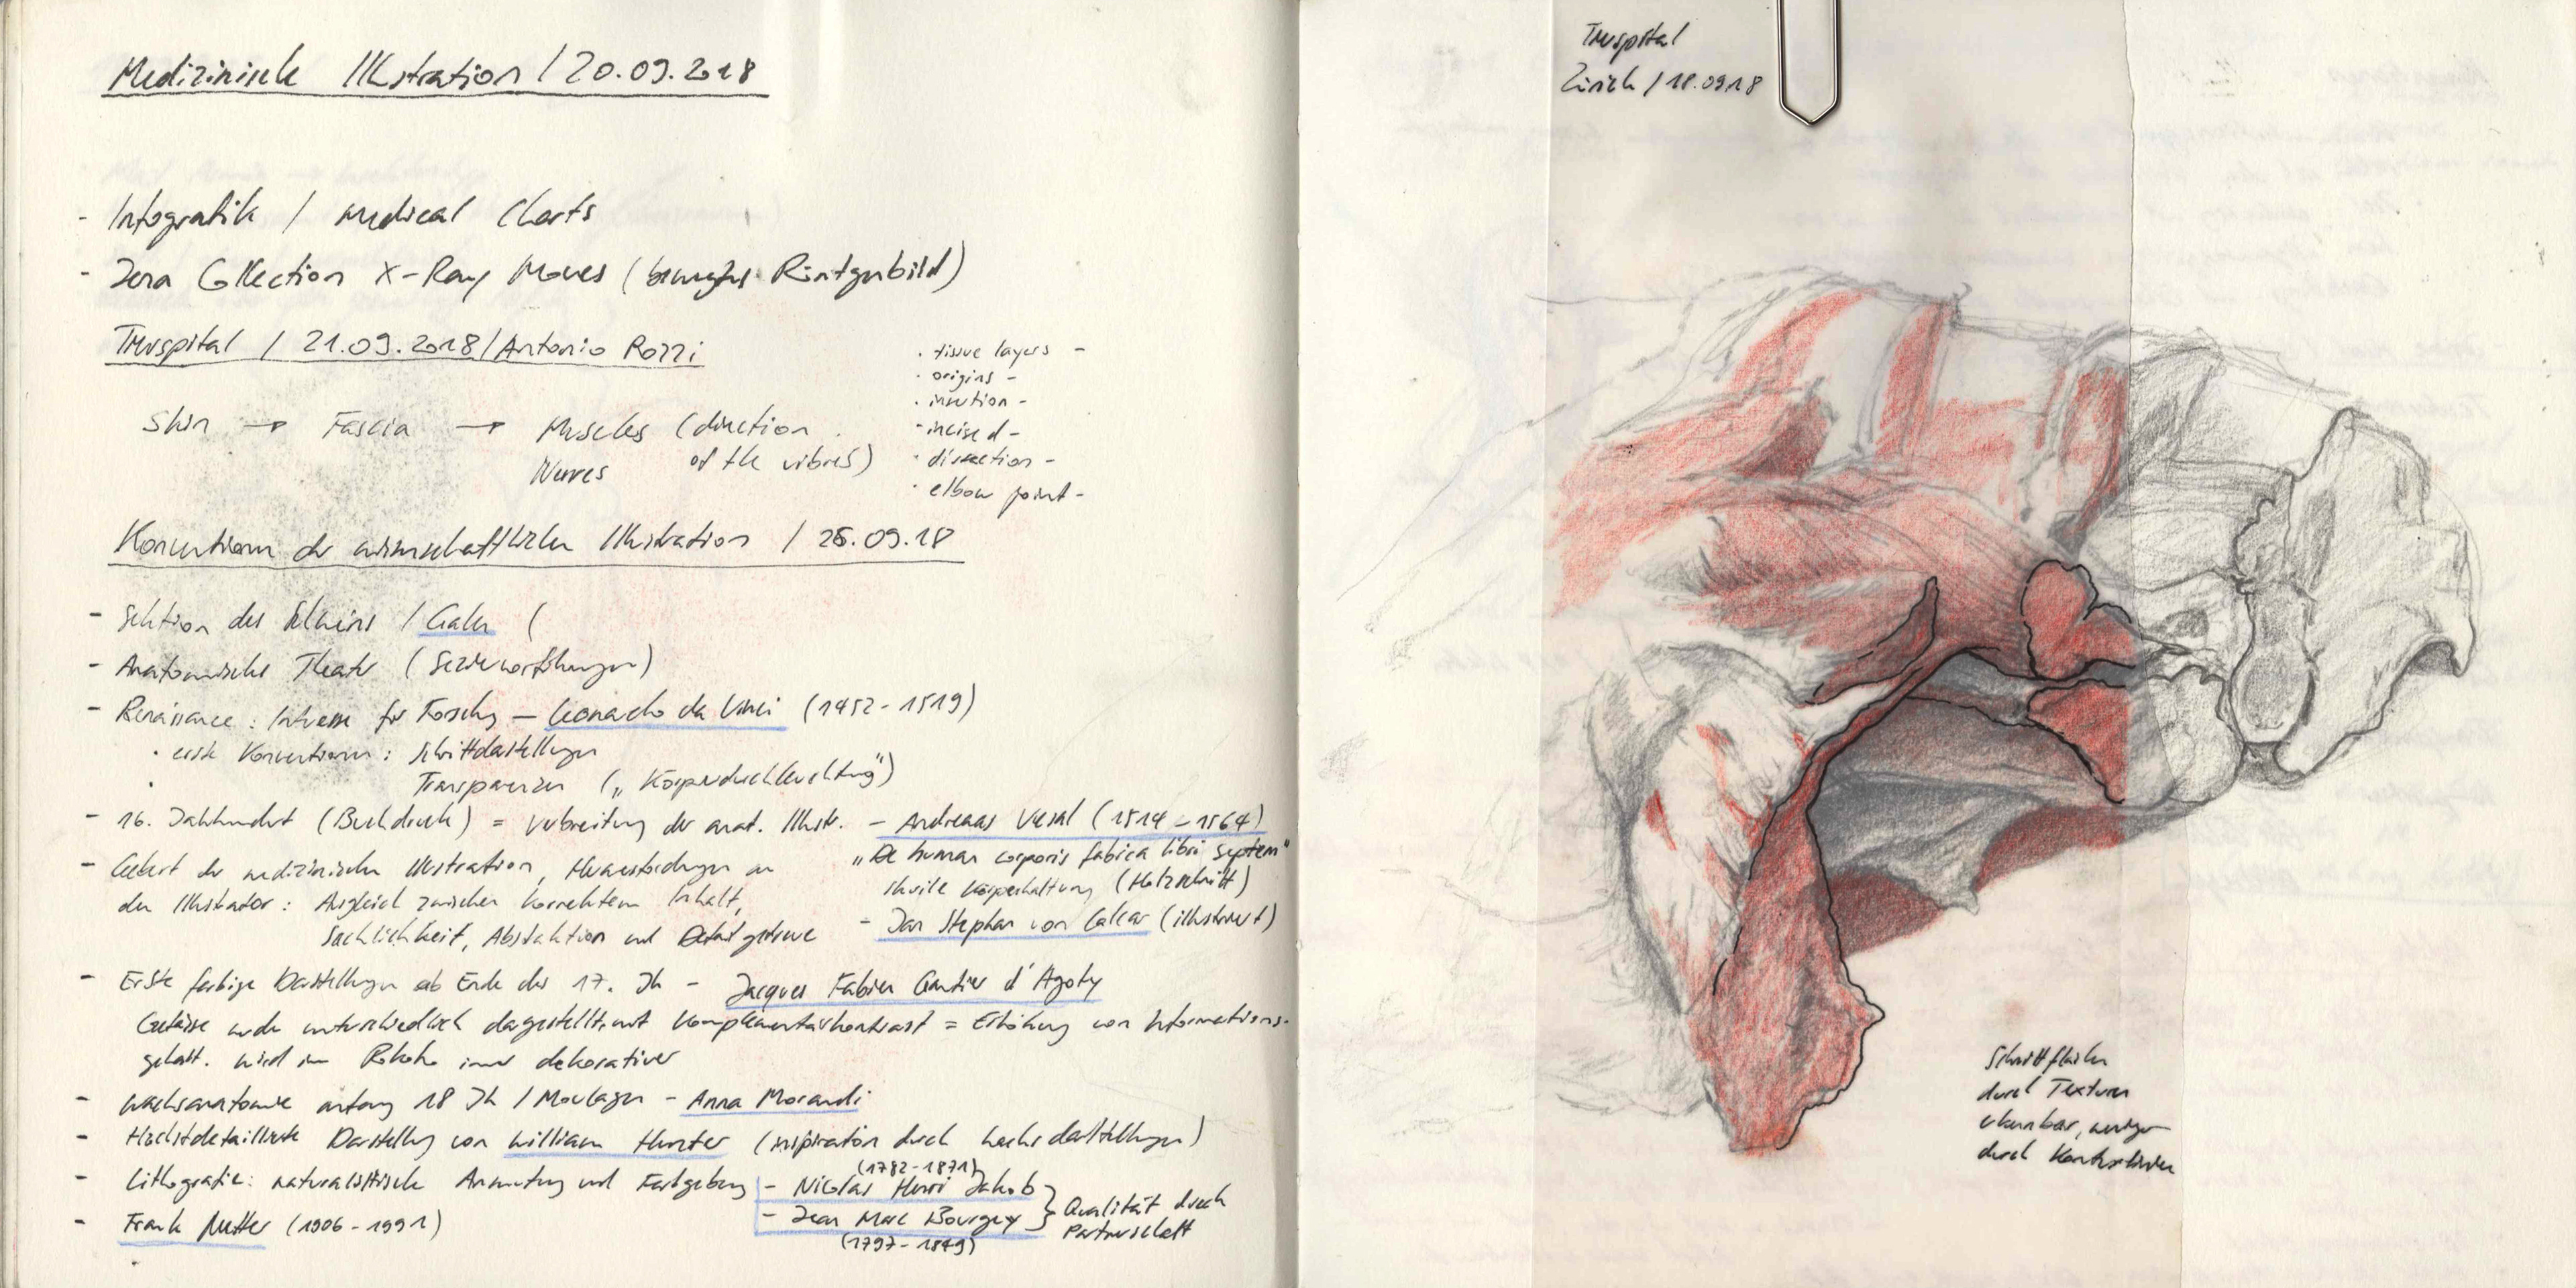 Medizinische Illustration / 20.09.2018
- Infografik / medical Charts
- Collection X-Ray Moves ( Röntgenbild)
Tierspital / 21.09.2018 / Antonio Pozzi
Skin → Fascia → Muscles (direction
Nerves of the vibres)
· tissue layers -
· origins -
· insertion -
· incised -
· dissection -
· elbow joint -
Konventionen der wissenschaftlichen Illustration / 25.09.18
- Sektion des Schweins / Galen (
- Anatomisches Theater (Seziervorführungen)
- Renaissance: Interesse für Forschung - Leonardo da Vinci (1452-1519)
· erste Konventionen: Schnittdarstellungen
Transparenzen („Körperdurchleuchtung")
- 16. Jahrhundert (Buchdruck) = Verbreitung der anat. Illustr. - Andreaas Vesal (1514-1564)
„De human corporis fabrica libri septem"
Körperhaltung (Holzschnitt)
- Jan Stephan von Calcar (illustriert)
- Geburt der medizinischen Illustration, Herausforderungen an
den Illustrator: Ausgleich zwischen korrektem Inhalt,
Sachlichkeit, Abstraktion und Detailgetreue
- Erste farbige Darstellungen ab Ende des 17. Jh - Jacques Fabien Gautier d'Agoty
Gefässe werden unterschiedlich dargestellt, mit Komplementärkontrast = Erhöhung von Informations-
gehalt. wird im Rokoko immer dekorativer
- Wachsanatomie anfang 18 Jh / Moulagen - Anna Morandi
- Höchstdetaillierte Darstellung von William Hunter (inspiration durch Wachsdarstellungen)
- Lithografie: naturalistische Anmutung und Farbgebung
(1782-1871)
- Nicolas Henri Jakob
- Jean Marc Bourgery
(1797-1849)
Qualität durch
Partnerschaft
- Frank Netter (1906-1991)
Tierspital
Zürich / 18.09.18
Schnittflächen
durch Texturen
erkennbar, weniger
durch Konturlinien